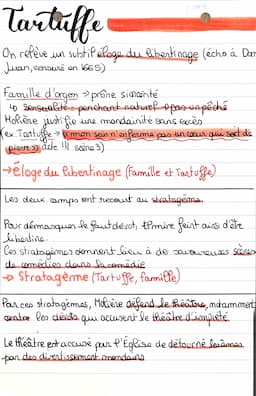 Tartuffe
On relève un subtil éloge du libertinage (écho à Dom
Juan, censuré en 1665)
Famille d'orgon → prône sincérité
↳ sensualité = penchant naturel ≠ pas un péché
Molière justifie une mondainité sans excès
ex Tartuffe → « mon sein n'enferme pas un cœur qui soit de
pierre » acte III scène 3)
→ éloge du libertinage (famille et Tartuffe)
Les deux camps ont recourt au stratagème.
Pour démarquer le faux dévot, Elmire feint aussi d'être
libertine.
Ces stratagèmes donnent lieu à de savoureuses scènes
de comédies dans la comédie
→ Stratagème (Tartuffe, famille)
Par ces stratagèmes, Molière défend le théâtre, notamment
contre les dévots qui accusent le théâtre d'impiété
Le théâtre est accusé par l'Eglise de détourné les âmes
par des divertissement mondains